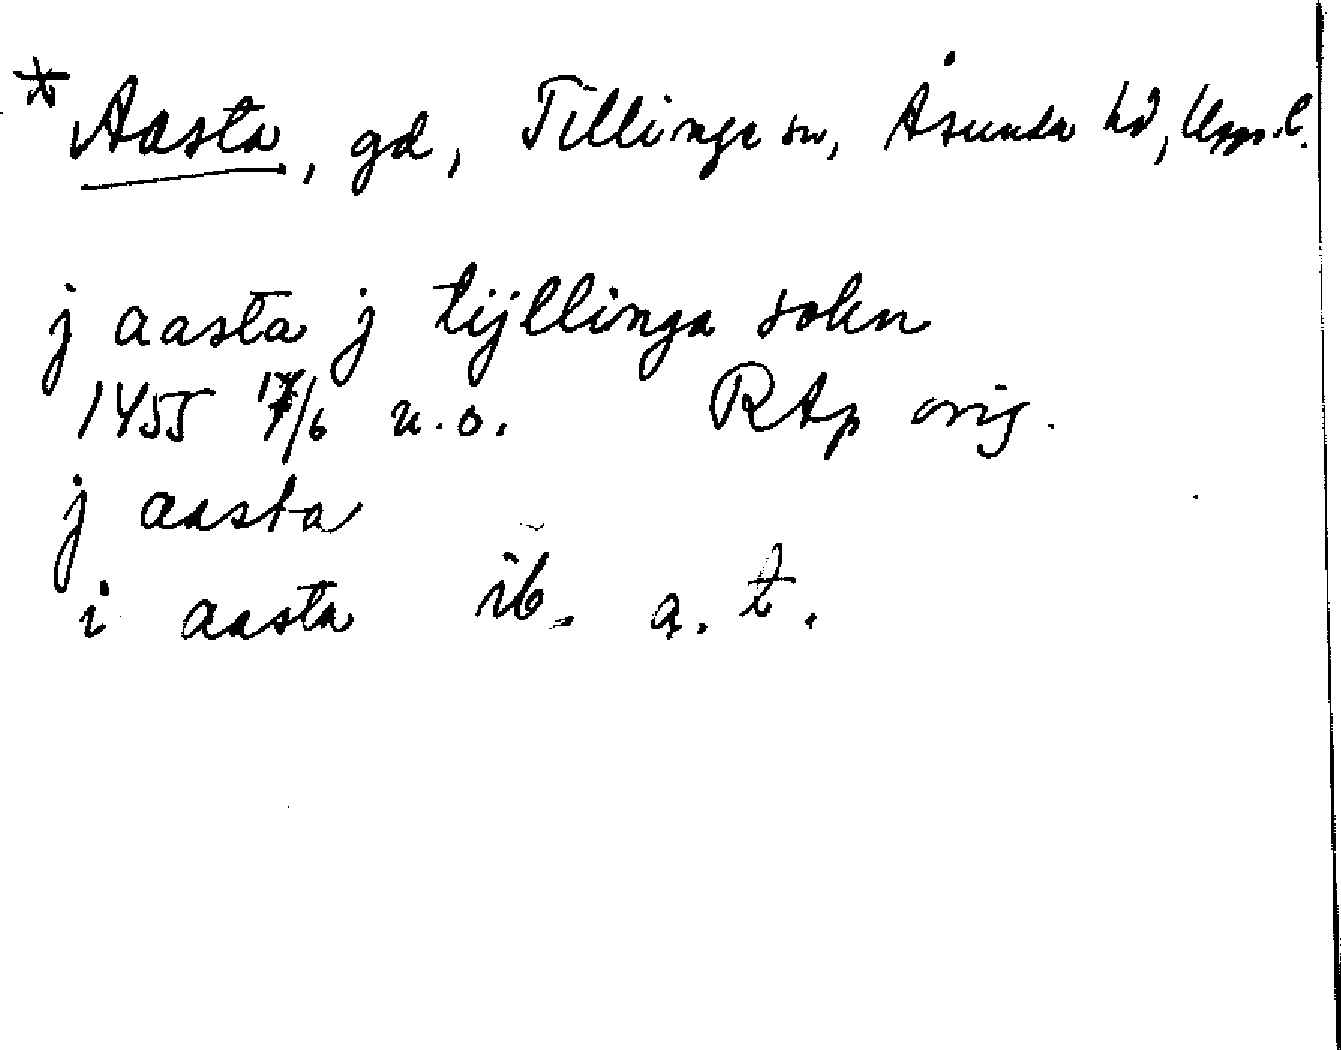 * Aasta, gd, Tillinge sn, Åsunda hd, Upps.l.
j aasta j tijllinga sokn
1455 17/6 u.o. RAp orig.
j aasta
i aasta ib. a. t.